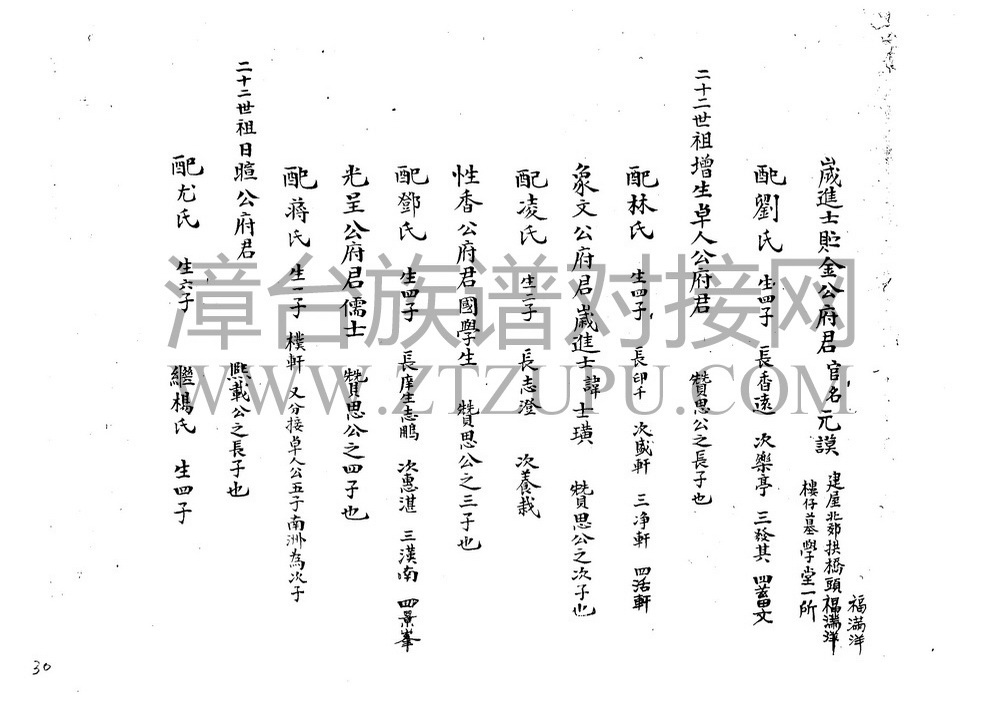 歲進士貯金公府君 官名元謨 建屋北郊拱橋頭福滿洋
樓仔墓學堂一所
福滿洋
配劉氏 生四子 長香遠 次樂亭 三發其 四蓄文
二十二世祖增生卓人公府君 贊思公之長子也
配林氏 生四子 長印千 次盛軒 三净軒 四活軒
象文公府君歲進士諱士璜 贊思公之次子也
配凌氏 生二子 長志澄 次養栽
性香公府君國學生 贊思公之三子也
配鄧氏 生四子 長庠生志鵬 次惠湛 三漢南 四景峯
光呈公府君儒士 贊思公之四子也
配蔣氏 生一子 樸軒 又分接卓人公五子南洲為次子
二十二世祖日暄公府君 熙載公之長子也
配尤氏 生六子 繼楊氏 生四子
30
漳台族谱对接网
WWW.ZTZUPU.COM